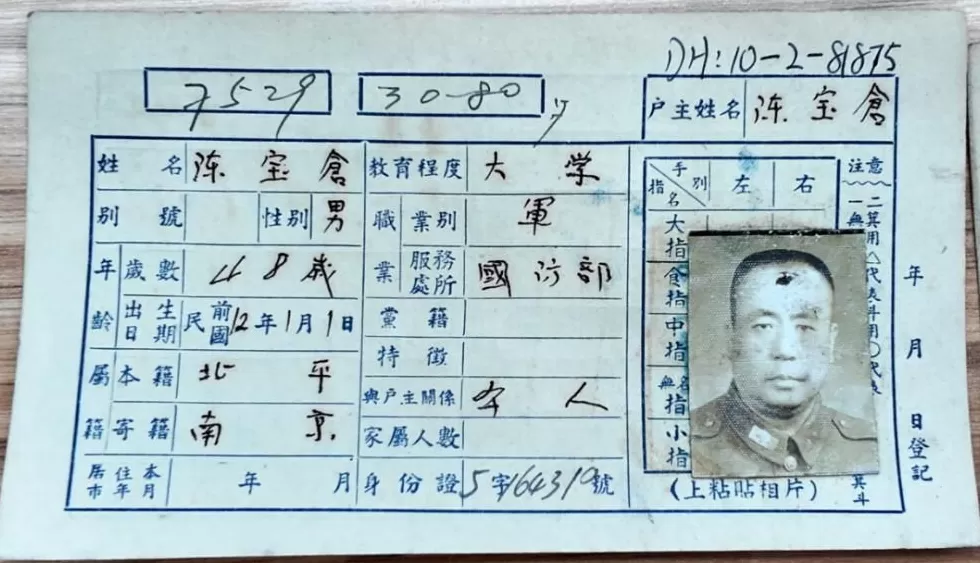 DH:10-2-81875
7529 30-80
户主姓名 陈宝倉
姓名 陈宝倉 教育程度 大学
别號 性别 男 職業 業别 軍
年龄 歲數 48歲 服務處所 國防部
出生日期 民國前12年1月1日 黨籍
特徵
屬籍 本籍 北平 與户主關係 本人
寄籍 南京 家屬人數
居住本市年月 年 月 身份證 5字164319號
手别 指名 左 右
大指
食指
中指
無名指
小指
(上粘貼相片)
注意
一無
二箕用△代表斗用〇代表
箕斗
年 月 日登記